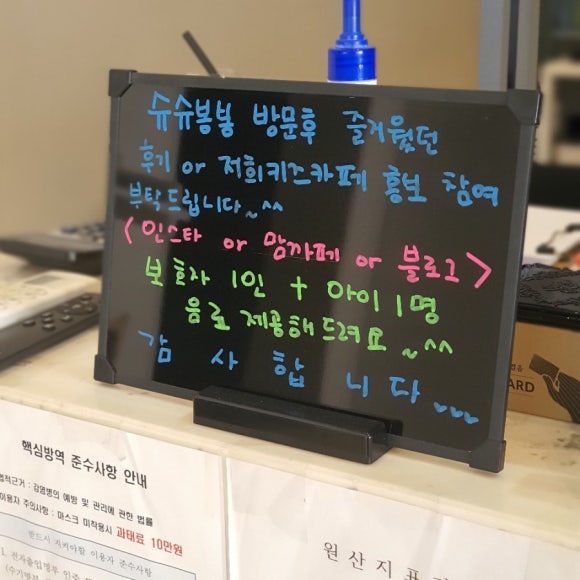 슈슈봉봉 방문후 즐거웠던
후기 or 저희키즈카페 홍보 참여
부탁드립니다~^^
<인스타 or 맘까페 or 블로그>
보호자 1인 + 아이 1명
음료 제공해드려요~^^
감사합니다
핵심방역 준수사항 안내
법적근거 : 감염병의 예방 및 관리에 관한 법률
이용자 주의사항 : 마스크 미착용시 과태료 10만원
반드시 지켜야할 이용자 준수사항
1. 전자출입명부 인증
(수기명부
원산지표
ARD